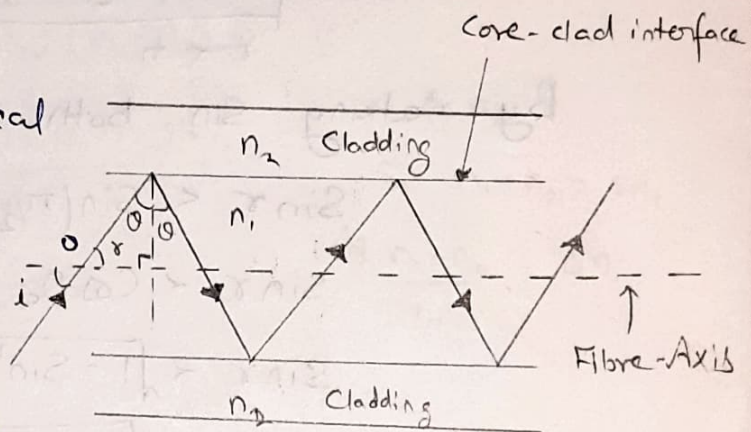 Core-clad interface
cal
n₂ Cladding
θ θ
n₁
O
r
i
Fibre-Axis
n₂ Cladding